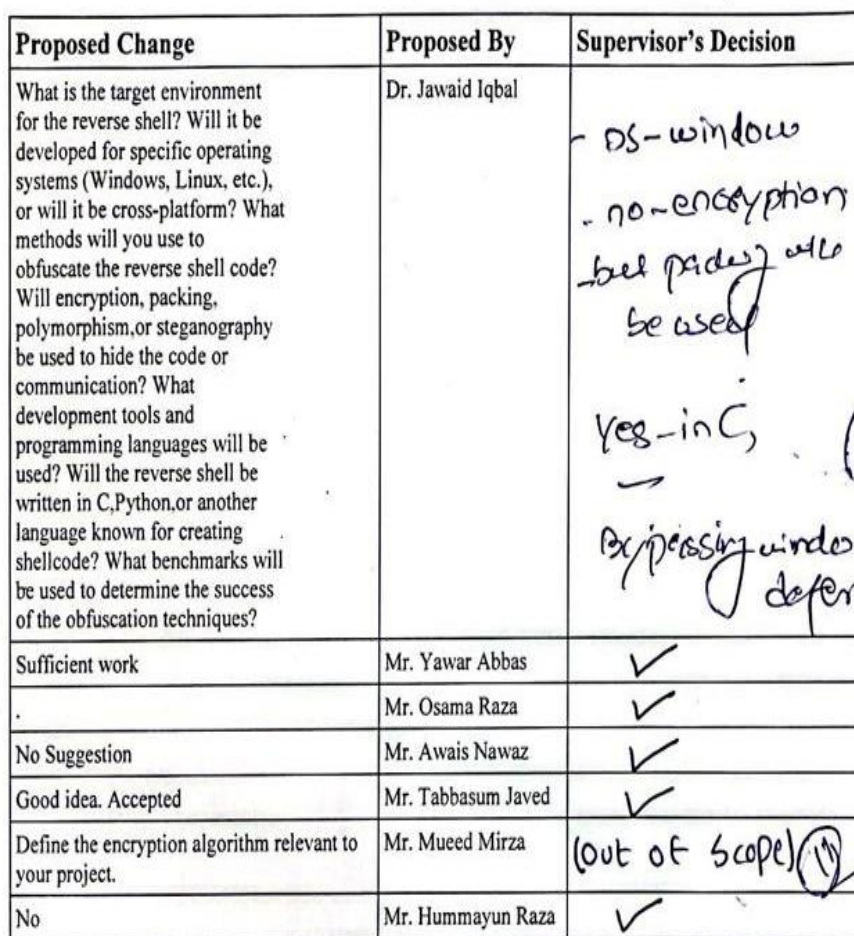 Proposed Change
Proposed By
Supervisor's Decision
What is the target environment
for the reverse shell? Will it be
developed for specific operating
systems (Windows, Linux, etc.),
or will it be cross-platform? What
methods will you use to
obfuscate the reverse shell code?
Will encryption, packing,
polymorphism,or steganography
be used to hide the code or
communication? What
development tools and
programming languages will be
used? Will the reverse shell be
written in C,Python,or another
language known for creating
shellcode? What benchmarks will
be used to determine the success
of the obfuscation techniques?
Dr. Jawaid Iqbal
- OS-window
- no-encryption
be used
Yes-in C,
Bypassing windo
defer
Sufficient work
Mr. Yawar Abbas
✓
.
Mr. Osama Raza
✓
No Suggestion
Mr. Awais Nawaz
✓
Good idea. Accepted
Mr. Tabbasum Javed
✓
Define the encryption algorithm relevant to
your project.
Mr. Mueed Mirza
(out of scope)
No
Mr. Hummayun Raza
✓